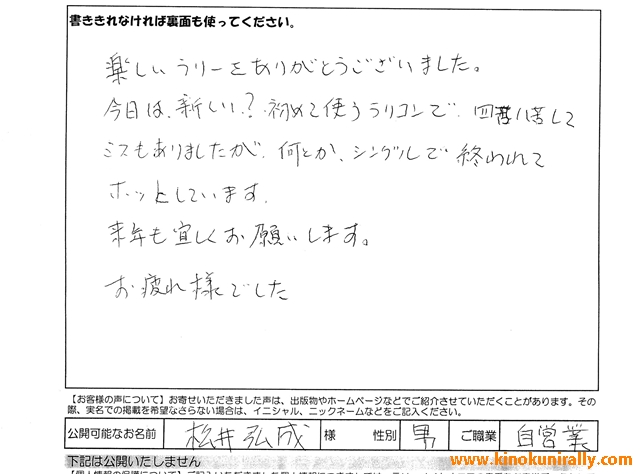 書ききれなければ裏面も使ってください。
楽しいラリーをありがとうございました。
今日は、新しい?初めて使うラリコンで、四苦八苦して
ミスもありましたが、何とか、シングルで終われて
ホッとしています。
来年も宜しくお願いします。
お疲れ様でした
【お客様の声について】お寄せいただきました声は、出版物やホームページなどでご紹介させていただくことがあります。その
際、実名での掲載を希望なさらない場合は、イニシャル、ニックネームなどをご記入ください。
公開可能なお名前 松井弘成 様 性別 男 ご職業 自営業
下記は公開いたしません
www.kinokunirally.com